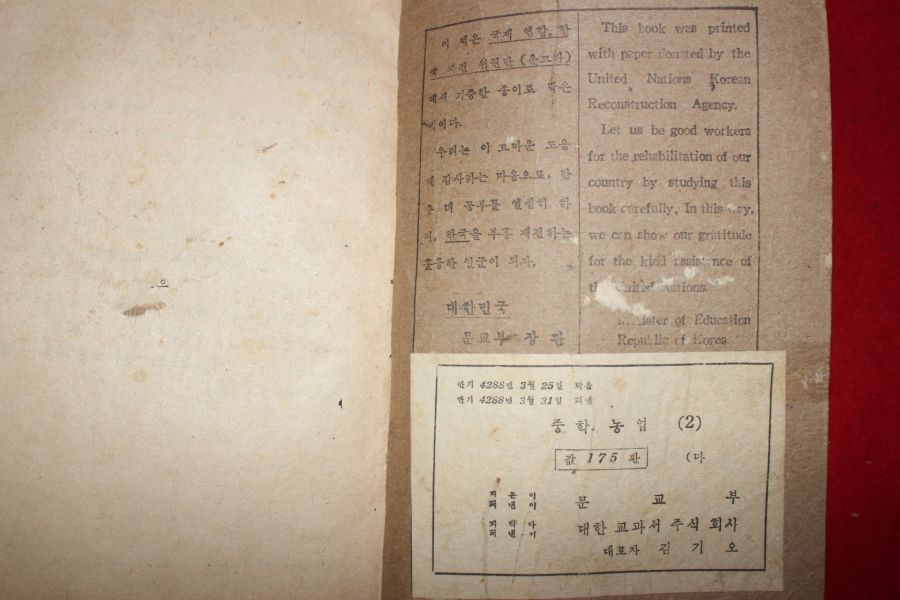 이 책은 국제 연합, 한
국 재건 위원단 (운끄라)
에서 기증한 종이로 박은
것이다.
우리는 이 고마운 도움
에 감사하는 마음으로, 한
층 더 공부를 열심히 하
여, 한국을 부흥 재건하는
훌륭한 일군이 되자.
대한민국
문교부 장관
This book was printed
with paper donated by the
United Nations Korean
Reconstruction Agency.
Let us be good workers
for the rehabilitation of our
country by studying this
book carefully. In this way,
we can show our gratitude
for the kind assistance of
the United Nations
Minister of Education
Republic of Korea
으
단기 4288년 3월 25일 박음
단기 4288년 3월 31일 펴냄
중학. 농업 (2)
값 175 환 (다
지은이
펴낸이
문교부
박아
펴낸이
대한 교과서 주식 회사
대표자 김기오